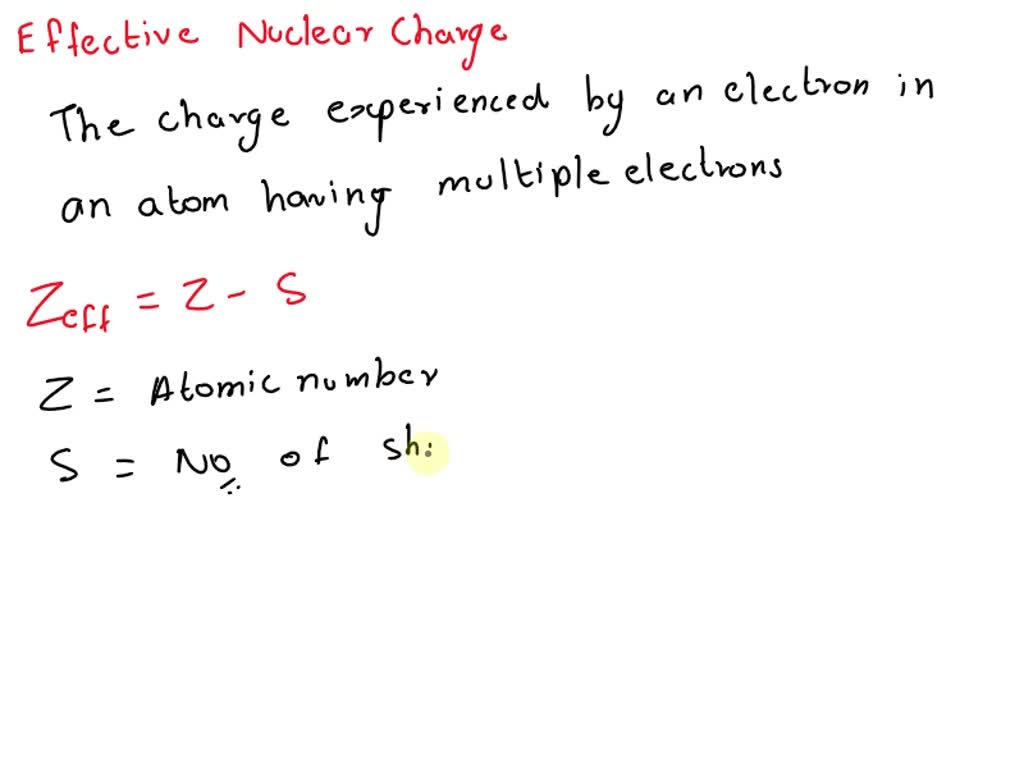 Effective Nuclear Charge
The charge experienced by an electron in
an atom having multiple electrons
Zeff = Z - S
Z = Atomic number
S = No of sh